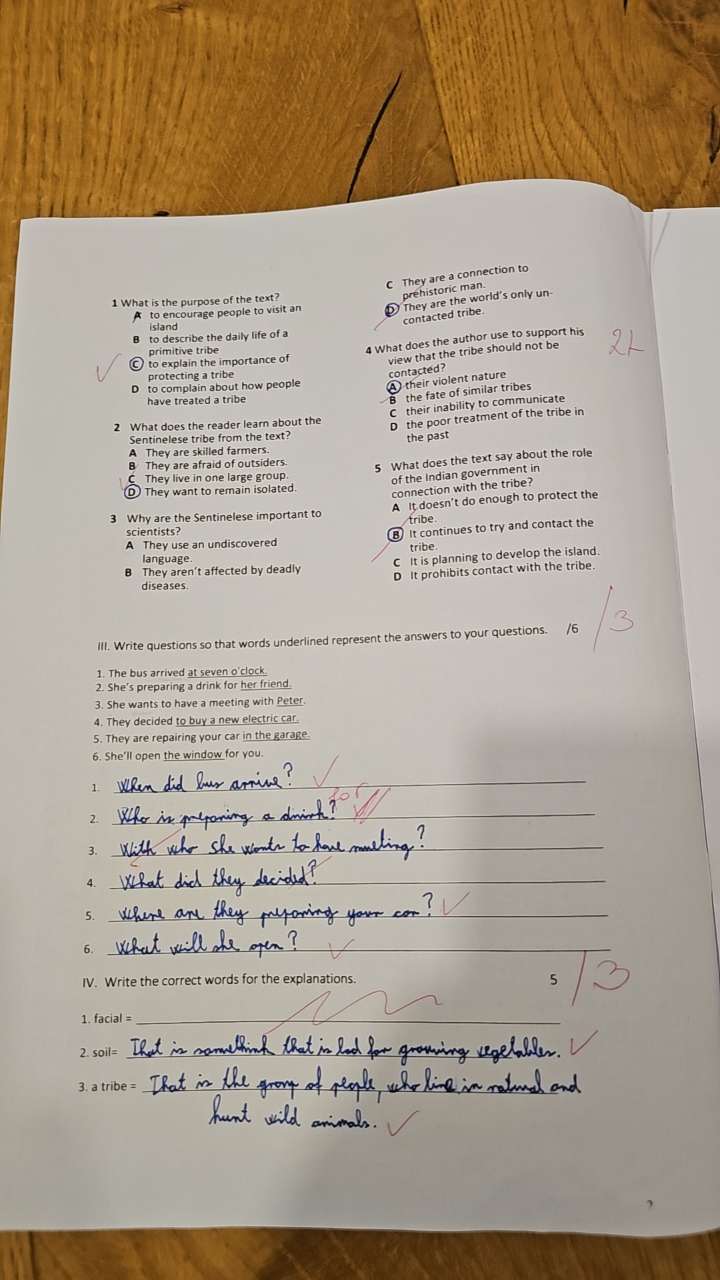 1 What is the purpose of the text?
A to encourage people to visit an
island
B to describe the daily life of a
primitive tribe
C to explain the importance of
protecting a tribe
D to complain about how people
have treated a tribe
2 What does the reader learn about the
Sentinelese tribe from the text?
A They are skilled farmers.
B They are afraid of outsiders.
C They live in one large group.
D They want to remain isolated.
3 Why are the Sentinelese important to
scientists?
A They use an undiscovered
language.
B They aren't affected by deadly
diseases.
C They are a connection to
prehistoric man.
D They are the world's only un-
contacted tribe.
4 What does the author use to support his
view that the tribe should not be
contacted?
A their violent nature
B the fate of similar tribes
C their inability to communicate
D the poor treatment of the tribe in
the past
5 What does the text say about the role
of the Indian government in
connection with the tribe?
A It doesn't do enough to protect the
tribe.
B It continues to try and contact the
tribe.
C It is planning to develop the island.
D It prohibits contact with the tribe.
III. Write questions so that words underlined represent the answers to your questions. /6
/3
1. The bus arrived at seven o'clock.
2. She's preparing a drink for her friend.
3. She wants to have a meeting with Peter.
4. They decided to buy a new electric car.
5. They are repairing your car in the garage.
6. She'll open the window for you.
1. When did bus arrive?
for
2. Who is preparing a drink?
3. With who she wants to have meeting?
4. What did they decided?
5. Where are they preparing your car?
6. What will she open?
IV. Write the correct words for the explanations. 5
/3
1. facial =
2. soil= That is somethink that is for growing vegetables.
3. a tribe = That is the group of people, who live in natural and
hunt wild animals.